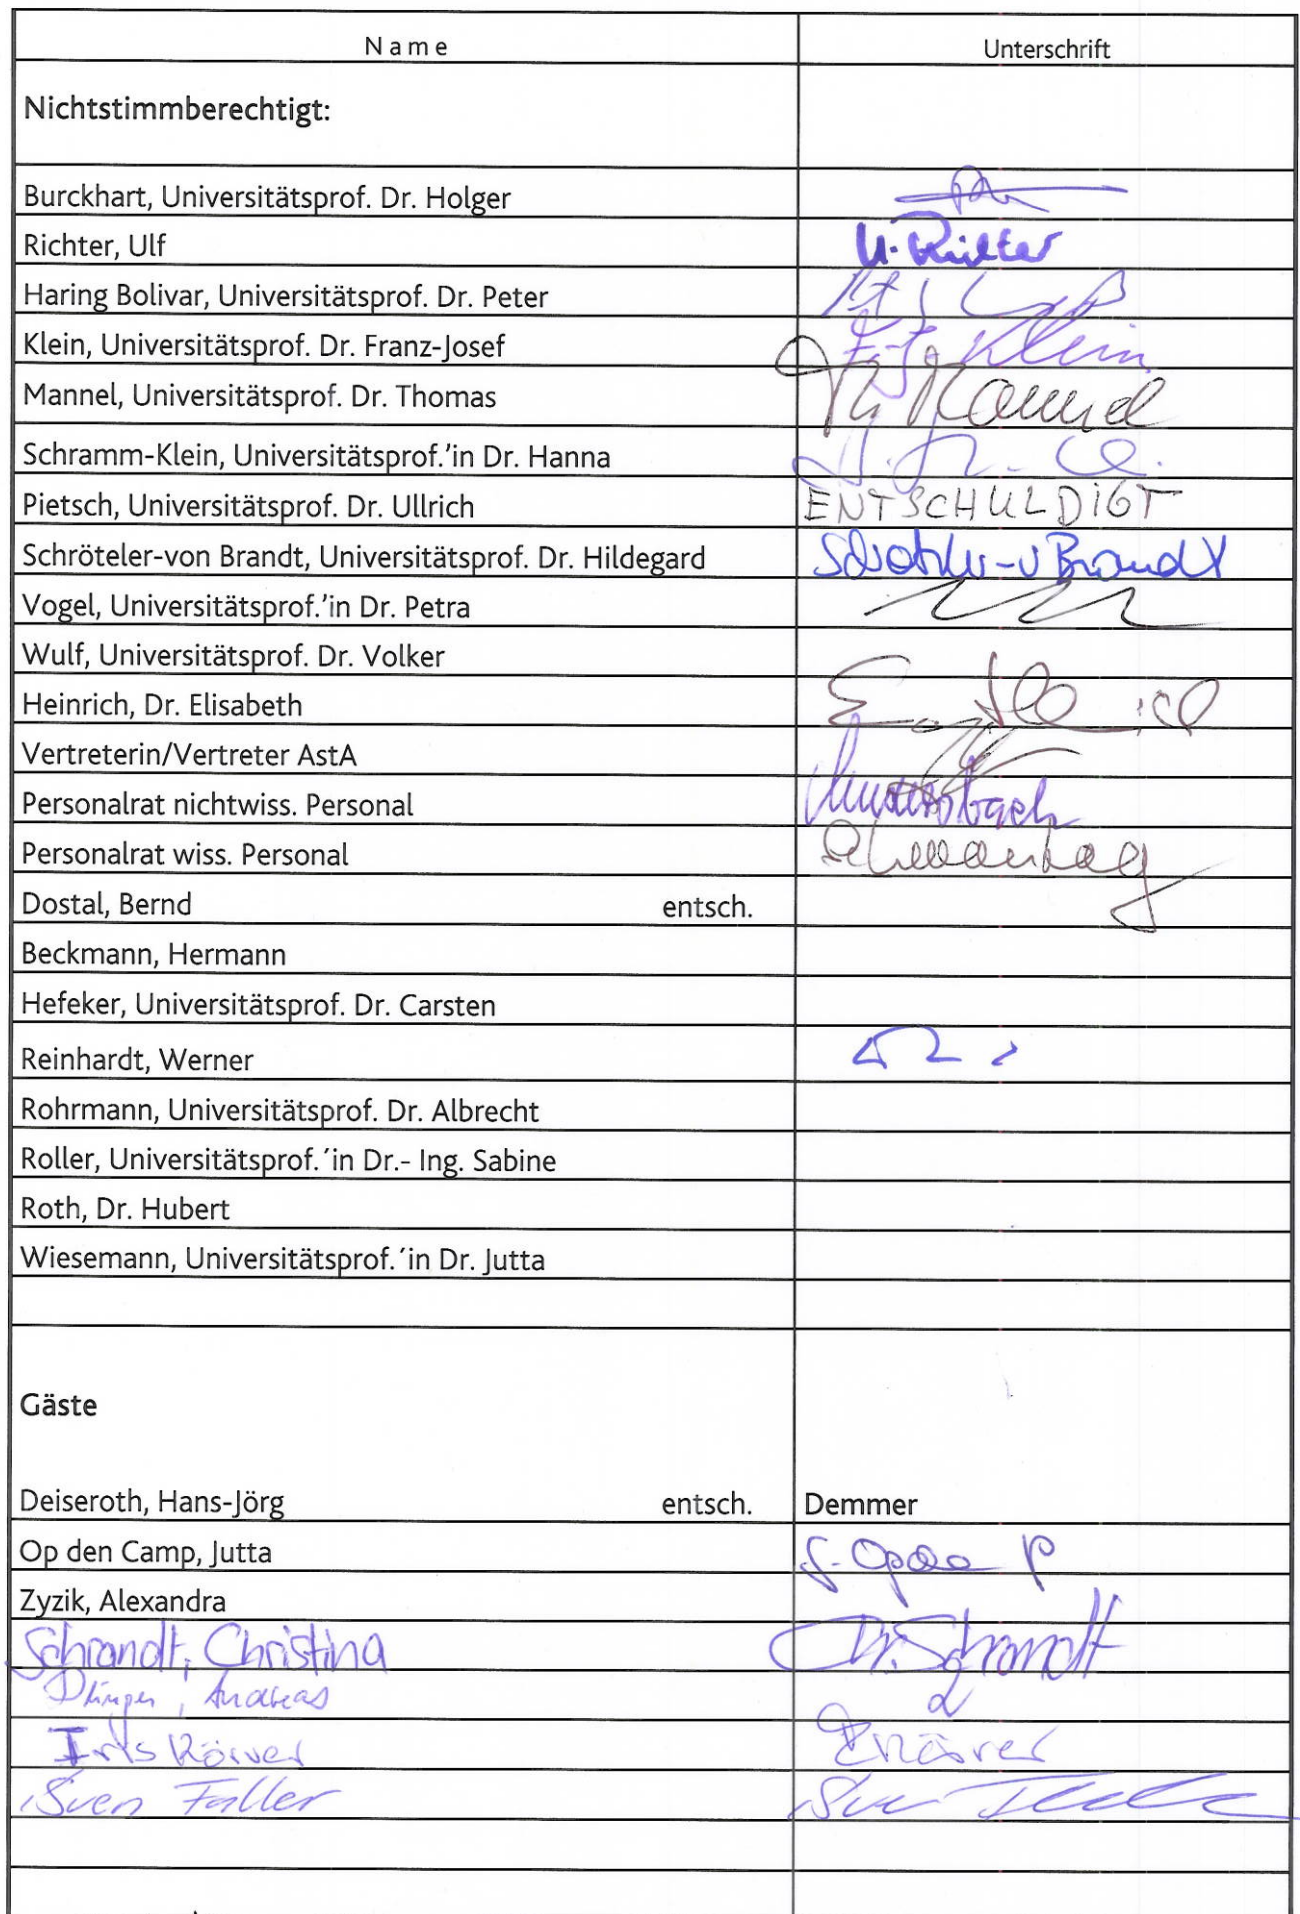 Name Unterschrift
Nichtstimmberechtigt:
Burckhart, Universitätsprof. Dr. Holger
Richter, Ulf U. Richter
Haring Bolivar, Universitätsprof. Dr. Peter
Klein, Universitätsprof. Dr. Franz-Josef F.-J. Klein
Mannel, Universitätsprof. Dr. Thomas Th. Mannel
Schramm-Klein, Universitätsprof.'in Dr. Hanna
Pietsch, Universitätsprof. Dr. Ullrich ENTSCHULDIGT
Schröteler-von Brandt, Universitätsprof. Dr. Hildegard Schröteler-v Brandt
Vogel, Universitätsprof.'in Dr. Petra
Wulf, Universitätsprof. Dr. Volker
Heinrich, Dr. Elisabeth
Vertreterin/Vertreter AStA
Personalrat nichtwiss. Personal
Personalrat wiss. Personal
Dostal, Bernd entsch.
Beckmann, Hermann
Hefeker, Universitätsprof. Dr. Carsten
Reinhardt, Werner
Rohrmann, Universitätsprof. Dr. Albrecht
Roller, Universitätsprof.´in Dr.- Ing. Sabine
Roth, Dr. Hubert
Wiesemann, Universitätsprof.´in Dr. Jutta
Gäste
Deiseroth, Hans-Jörg entsch. Demmer
Op den Camp, Jutta
Zyzik, Alexandra
Schrandt, Christina Dr. Schrandt
Andreas
Iris Körver Körver
Sven Faller Sven